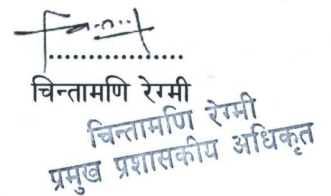 चिन्तामणि रेग्मी
चिन्तामणि रेग्मी
प्रमुख प्रशासकीय अधिकृत